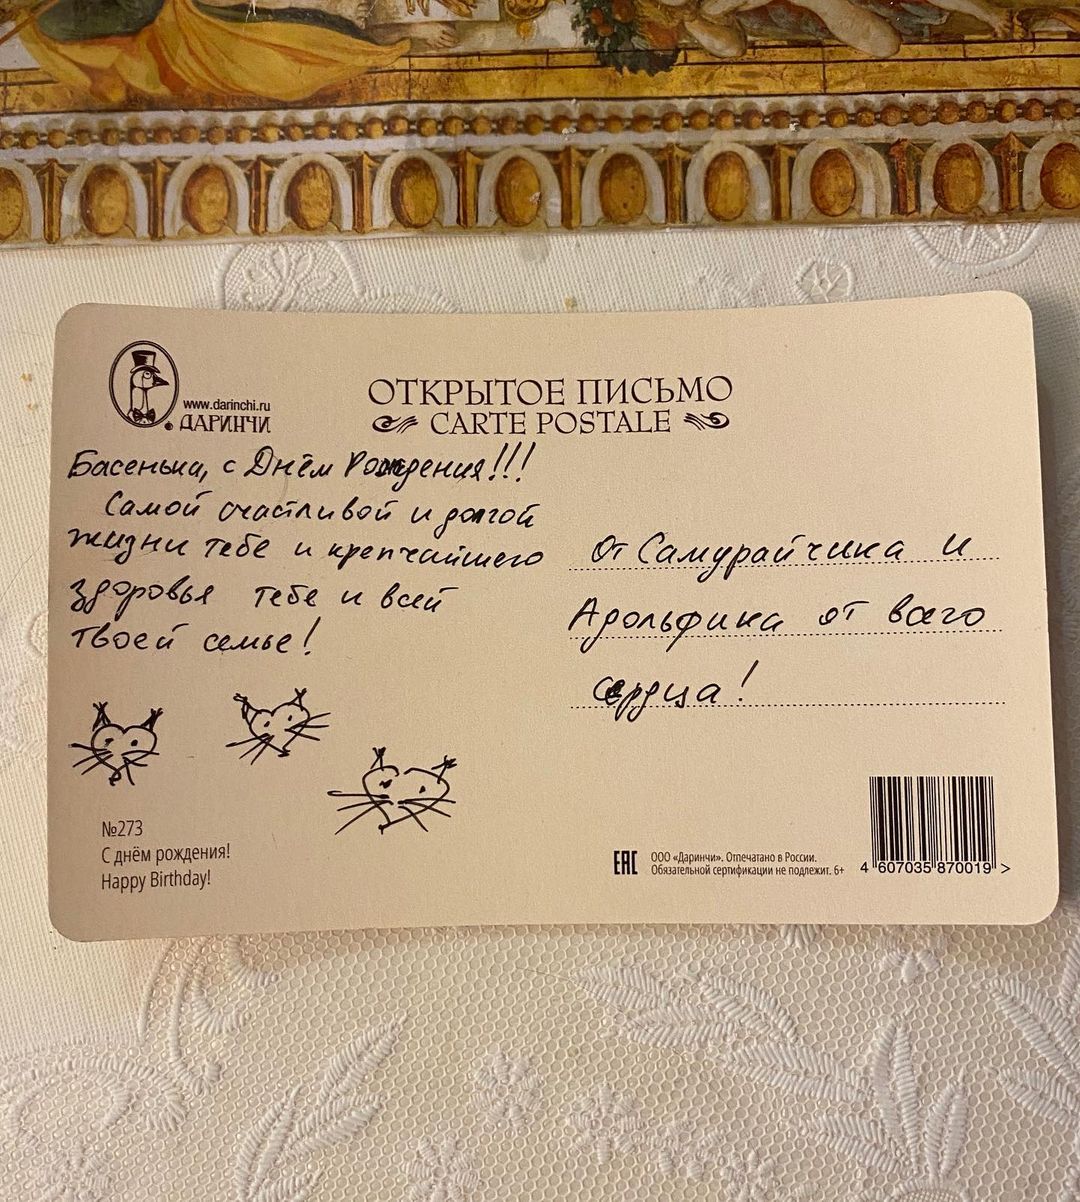 www.darinchi.ru
ДАРИНЧИ
ОТКРЫТОЕ ПИСЬМО
CARTE POSTALE
Басенька, с Днём Рождения!!!
Самой счастливой и долгой
жизни тебе и крепчайшего
здоровья тебе и всей
твоей семье!
От Самурайчика и
Адольфика от всего
сердца!
№273
С днём рождения!
Happy Birthday!
EAC
ООО «Даринчи». Отпечатано в России.
Обязательной сертификации не подлежит. 6+
4 607035 870019 >